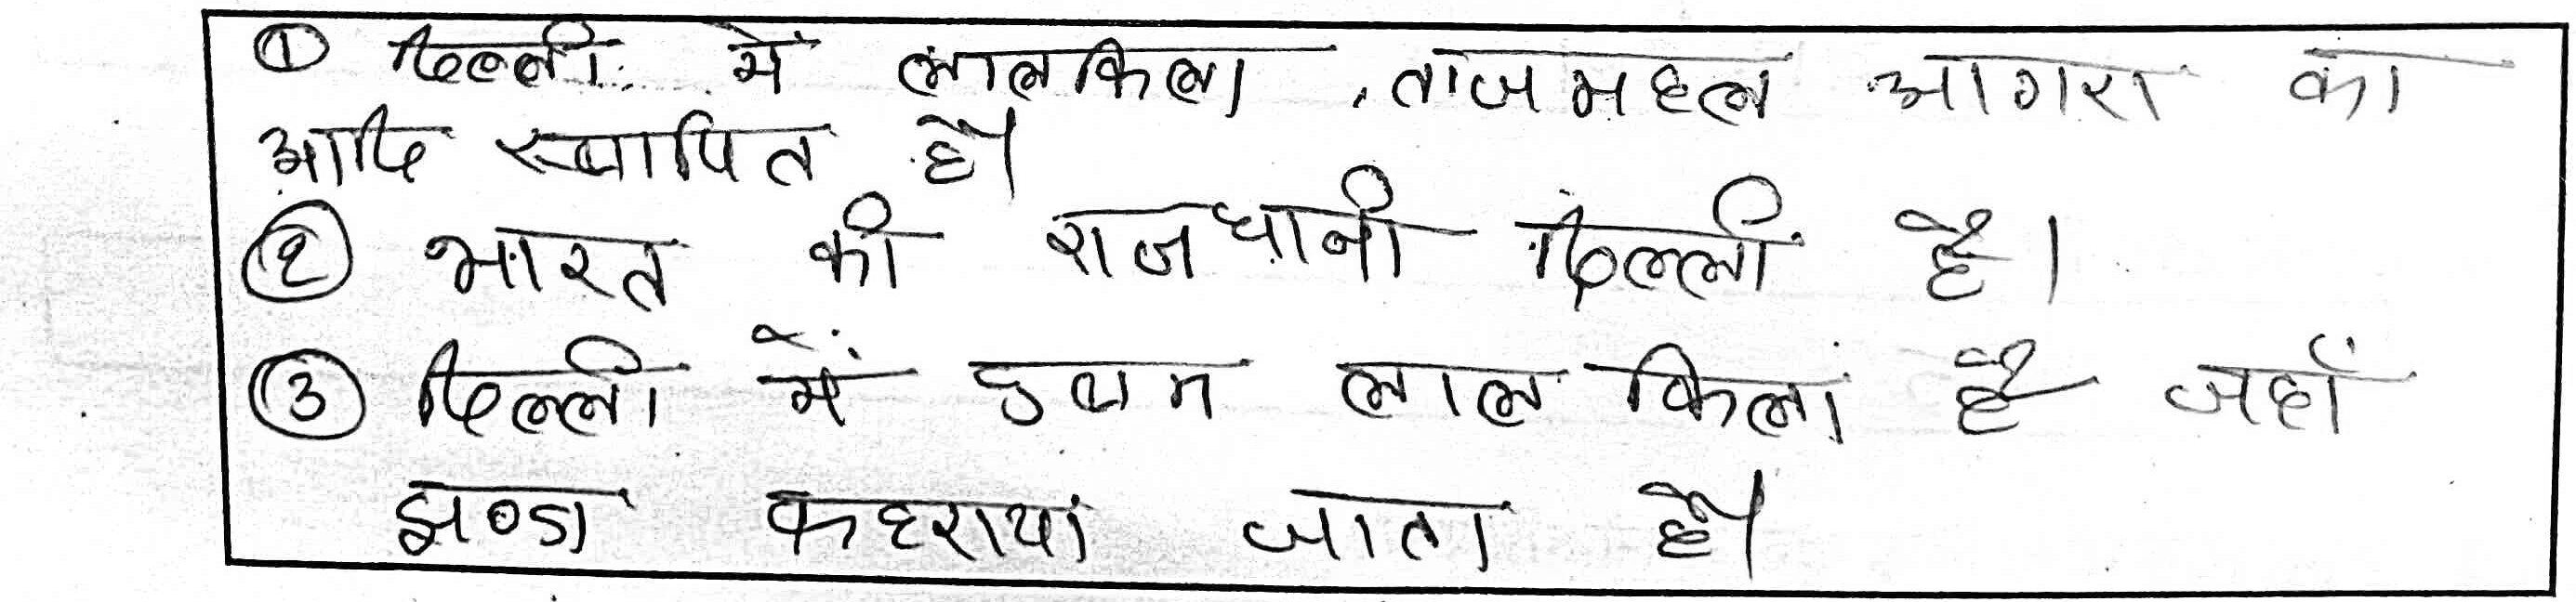 ① दिल्ली में लालकिला, ताजमहल आगरा का
आदि स्थापित है।
② भारत की राजधानी दिल्ली है।
③ दिल्ली में लाल किला है जहाँ
झण्डा फहराया जाता है।